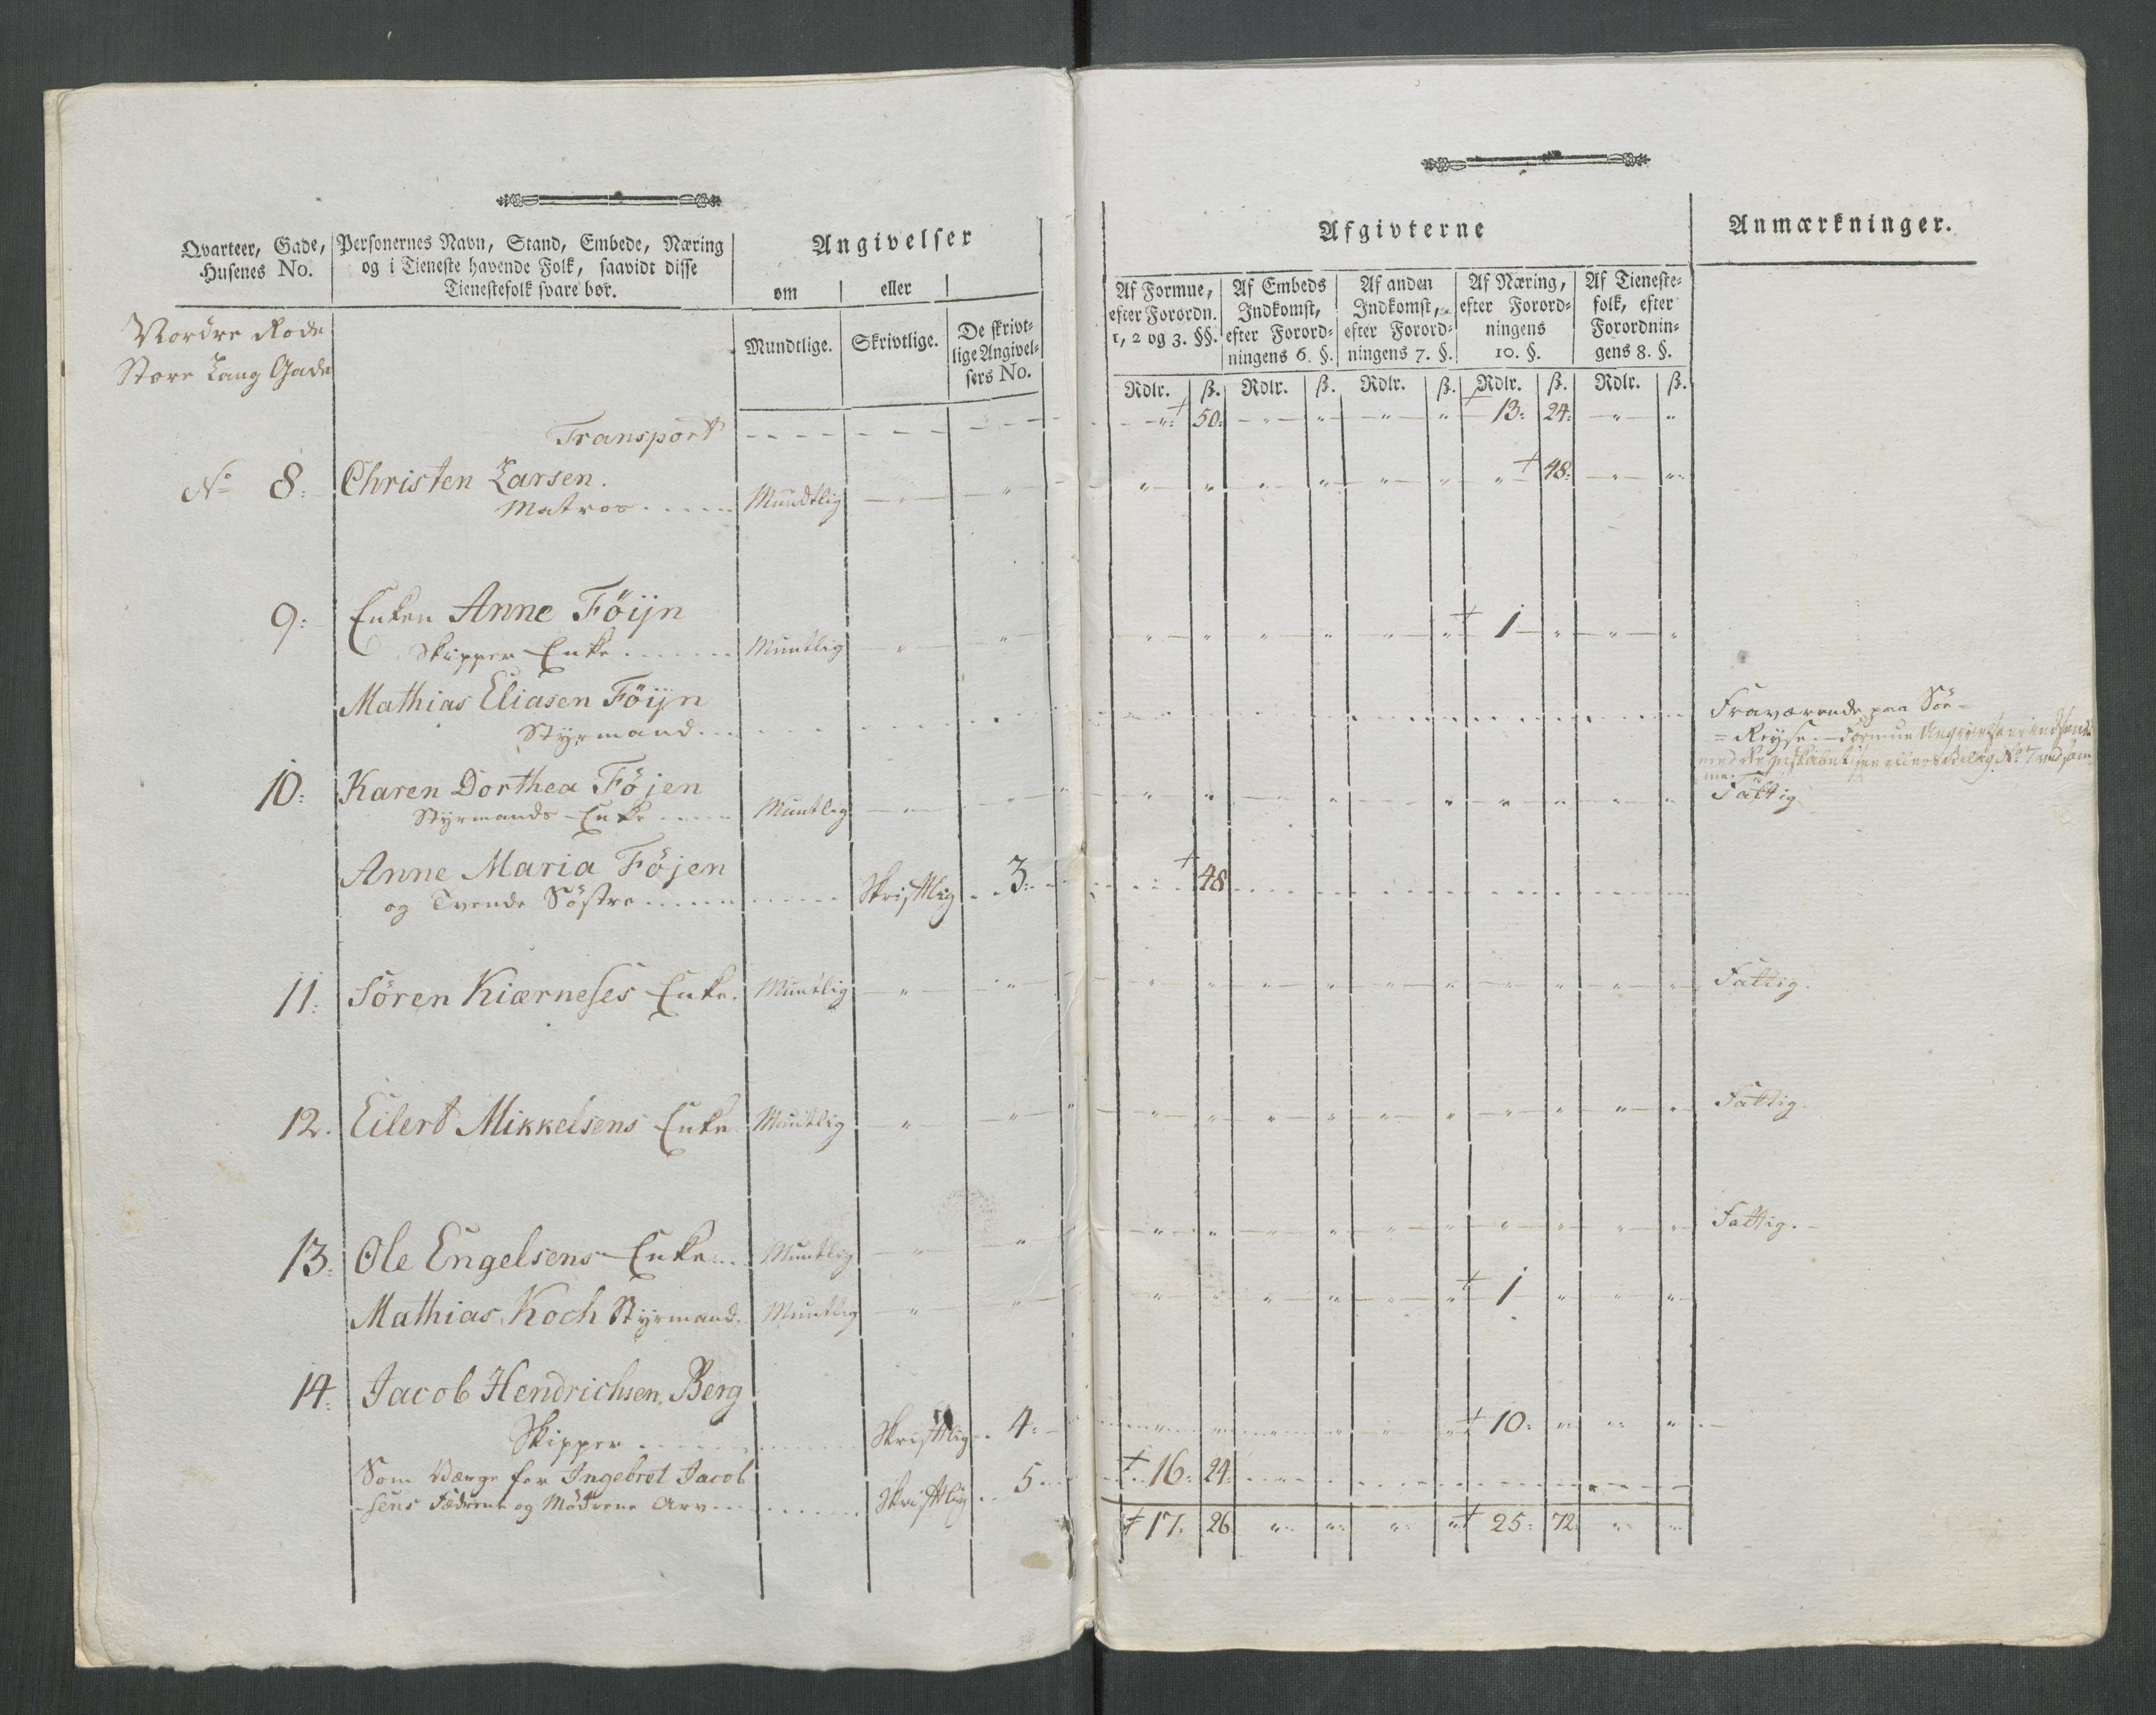 Qvarteer, Gade,
Husenes No.
Personernes Navn, Stand, Embede, Næring
og i Tieneste havende Folk, saavidt disse
Tienestefolk svare bør.
Angivelser
om eller
Mundtlige. Skrivtlige. De skrivt-
lige Angivel-
sers No.
Afgivterne
Af Formue,
efter Forordn.
1, 2 og 3. §§.
Af Embeds
Indkomst,
efter Forord-
ningens 6. §.
Af anden
Indkomst,
efter Forord-
ningens 7. §.
Af Næring,
efter Forord-
ningens
10. §.
Af Tieneste-
folk, efter
Forordnin-
gens 8. §.
Rdlr. ß. Rdlr. ß. Rdlr. ß. Rdlr. ß. Rdlr. ß.
Anmærkninger.
Nordre Rode
Store Lang Gade
Transport - - - - " 50: " " " " 13: 24: " "
No 8: Christen Larsen.
Matros Mundtlig " " " " " " " " " 48: " "
9: Enken Anne Föijn
Skipper Enke Muntlig " " " " " " " " 1 " " "
Mathias Eliasen Föijn
Styrmand
Fraværende paa Söe-
= Reyse. - Formue
10: Karen Dorthea Föjen
Styrmands Enke Muntlig " " " " " " " " " " " " Fattig
Anne Maria Föjen
og Tvende Söstre Skriftlig 3: 48
11: Sören Kiærneses Enke. Muntlig " " " " " " " " " " " " Fattig.
12. Eilert Mikkelsens Enke Muntlig " " " " " " " " " " " " Fattig.
13: Ole Engelsens Enke Muntlig " " " " " " " " " " " " Fattig.
Mathias Koch Styrmand. Muntlig " " " " " " " " 1 " " "
14: Jacob Hendrichsen Berg
Skipper Skriftlig 4: " " " " " " 10: " " "
Som Værge for Ingebret Jacob
-sens Fædrene og Mödrene Arv Skriftlig 5 16: 24:
17: 26 " " " " 25: 72: " "